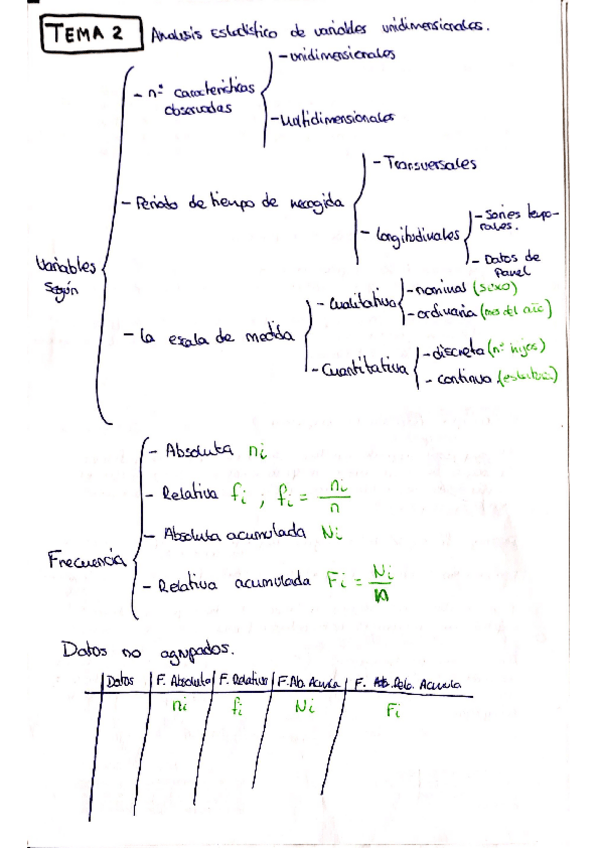 TEMA 2 Analisis Estadístico de variables unidimensionales.
- nº características observadas
- unidimensionales
- Multidimensionales
- Periodo de tiempo de recogida
- Transversales
- Longitudinales
- Series tempo-
rales.
- Datos de
Panel
Variables
Según
- La escala de medida
- Cualitativa
- nominal (sexo)
- ordinaria (mes del año)
- Cuantitativa
- discreta (nº hijos)
- continua (estatura)
Frecuencia
- Absoluta ni
- Relativa fi ; fi = ni/n
- Absoluta acumulada Ni
- Relativa acumulada Fi = Ni/n
Datos no agrupados.
Datos F. Absoluta F. Relativa F. Ab. Acumla F. Rela. Acumula
ni fi Ni Fi